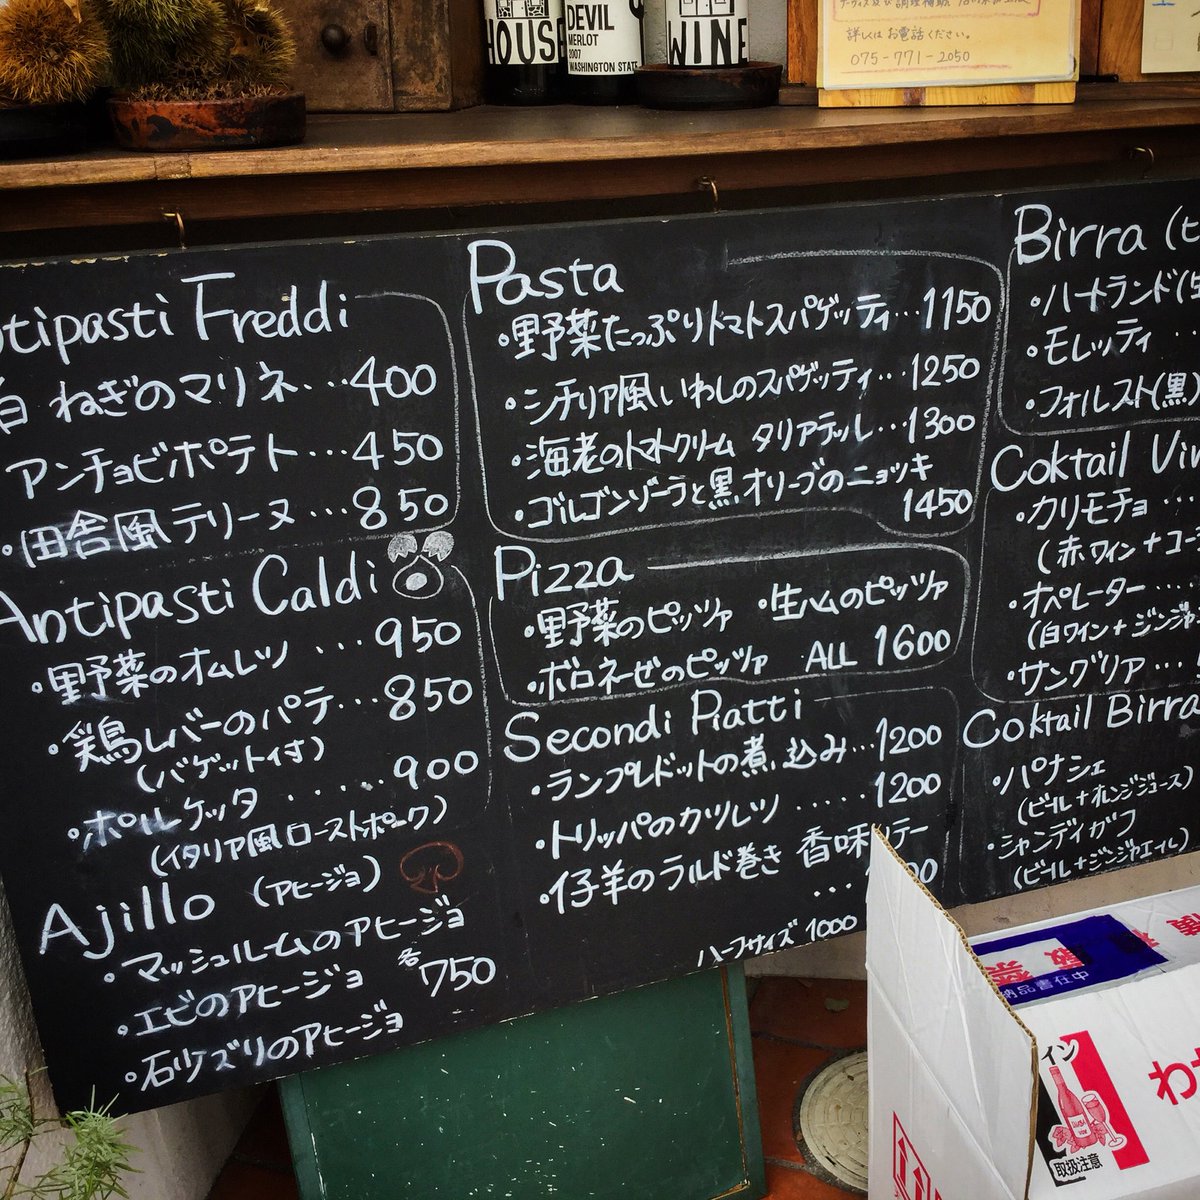 HOUSE
DEVIL
MERLOT
2007
WASHINGTON STATE
WINE
詳しくはお電話ください。
075-771-2050
tipasti Freddi
白ねぎのマリネ...400
アンチョビポテト...450
・田舎風テリーヌ...850
Antipasti Caldi
・野菜のオムレツ...950
・鶏レバーのパテ...850
(バゲット付)
・ポルケッタ.....900
(イタリア風ローストポーク)
Ajillo (アヒージョ)
・マッシュルームのアヒージョ
・エビのアヒージョ 各750
・石ツズリのアヒージョ
Pasta
・野菜たっぷりトマトスパゲッティ...1150
・シチリア風いわしのスパゲッティ...1250
・海老のトマトクリーム タリアテッレ...1300
・ゴルゴンゾーラと黒オリーブのニョッキ
1450
Pizza
・野菜のピッツァ ・生ハムのピッツァ
・ボロネーゼのピッツァ ALL 1600
Secondi Piatti
・ランプレドットの煮込み...1200
・トリッパのカツレツ.....1200
・仔羊のラルド巻き 香味ソテー
...00
ハーフサイズ 1000
Birra (ビ
・ハートランド(生
・モレッティ...
・フォルスト(黒)
Coktail Vin
・カリモチョ...
(赤ワイン+コー
・オペレーター....
(白ワイン+ジンジャ
・サングリア...
Coktail Birra
・パナシェ
(ビール+オレンジジュース)
・シャンディガフ
(ビール+ジンジャエール)
納品書在中
イン
わ
取扱注意